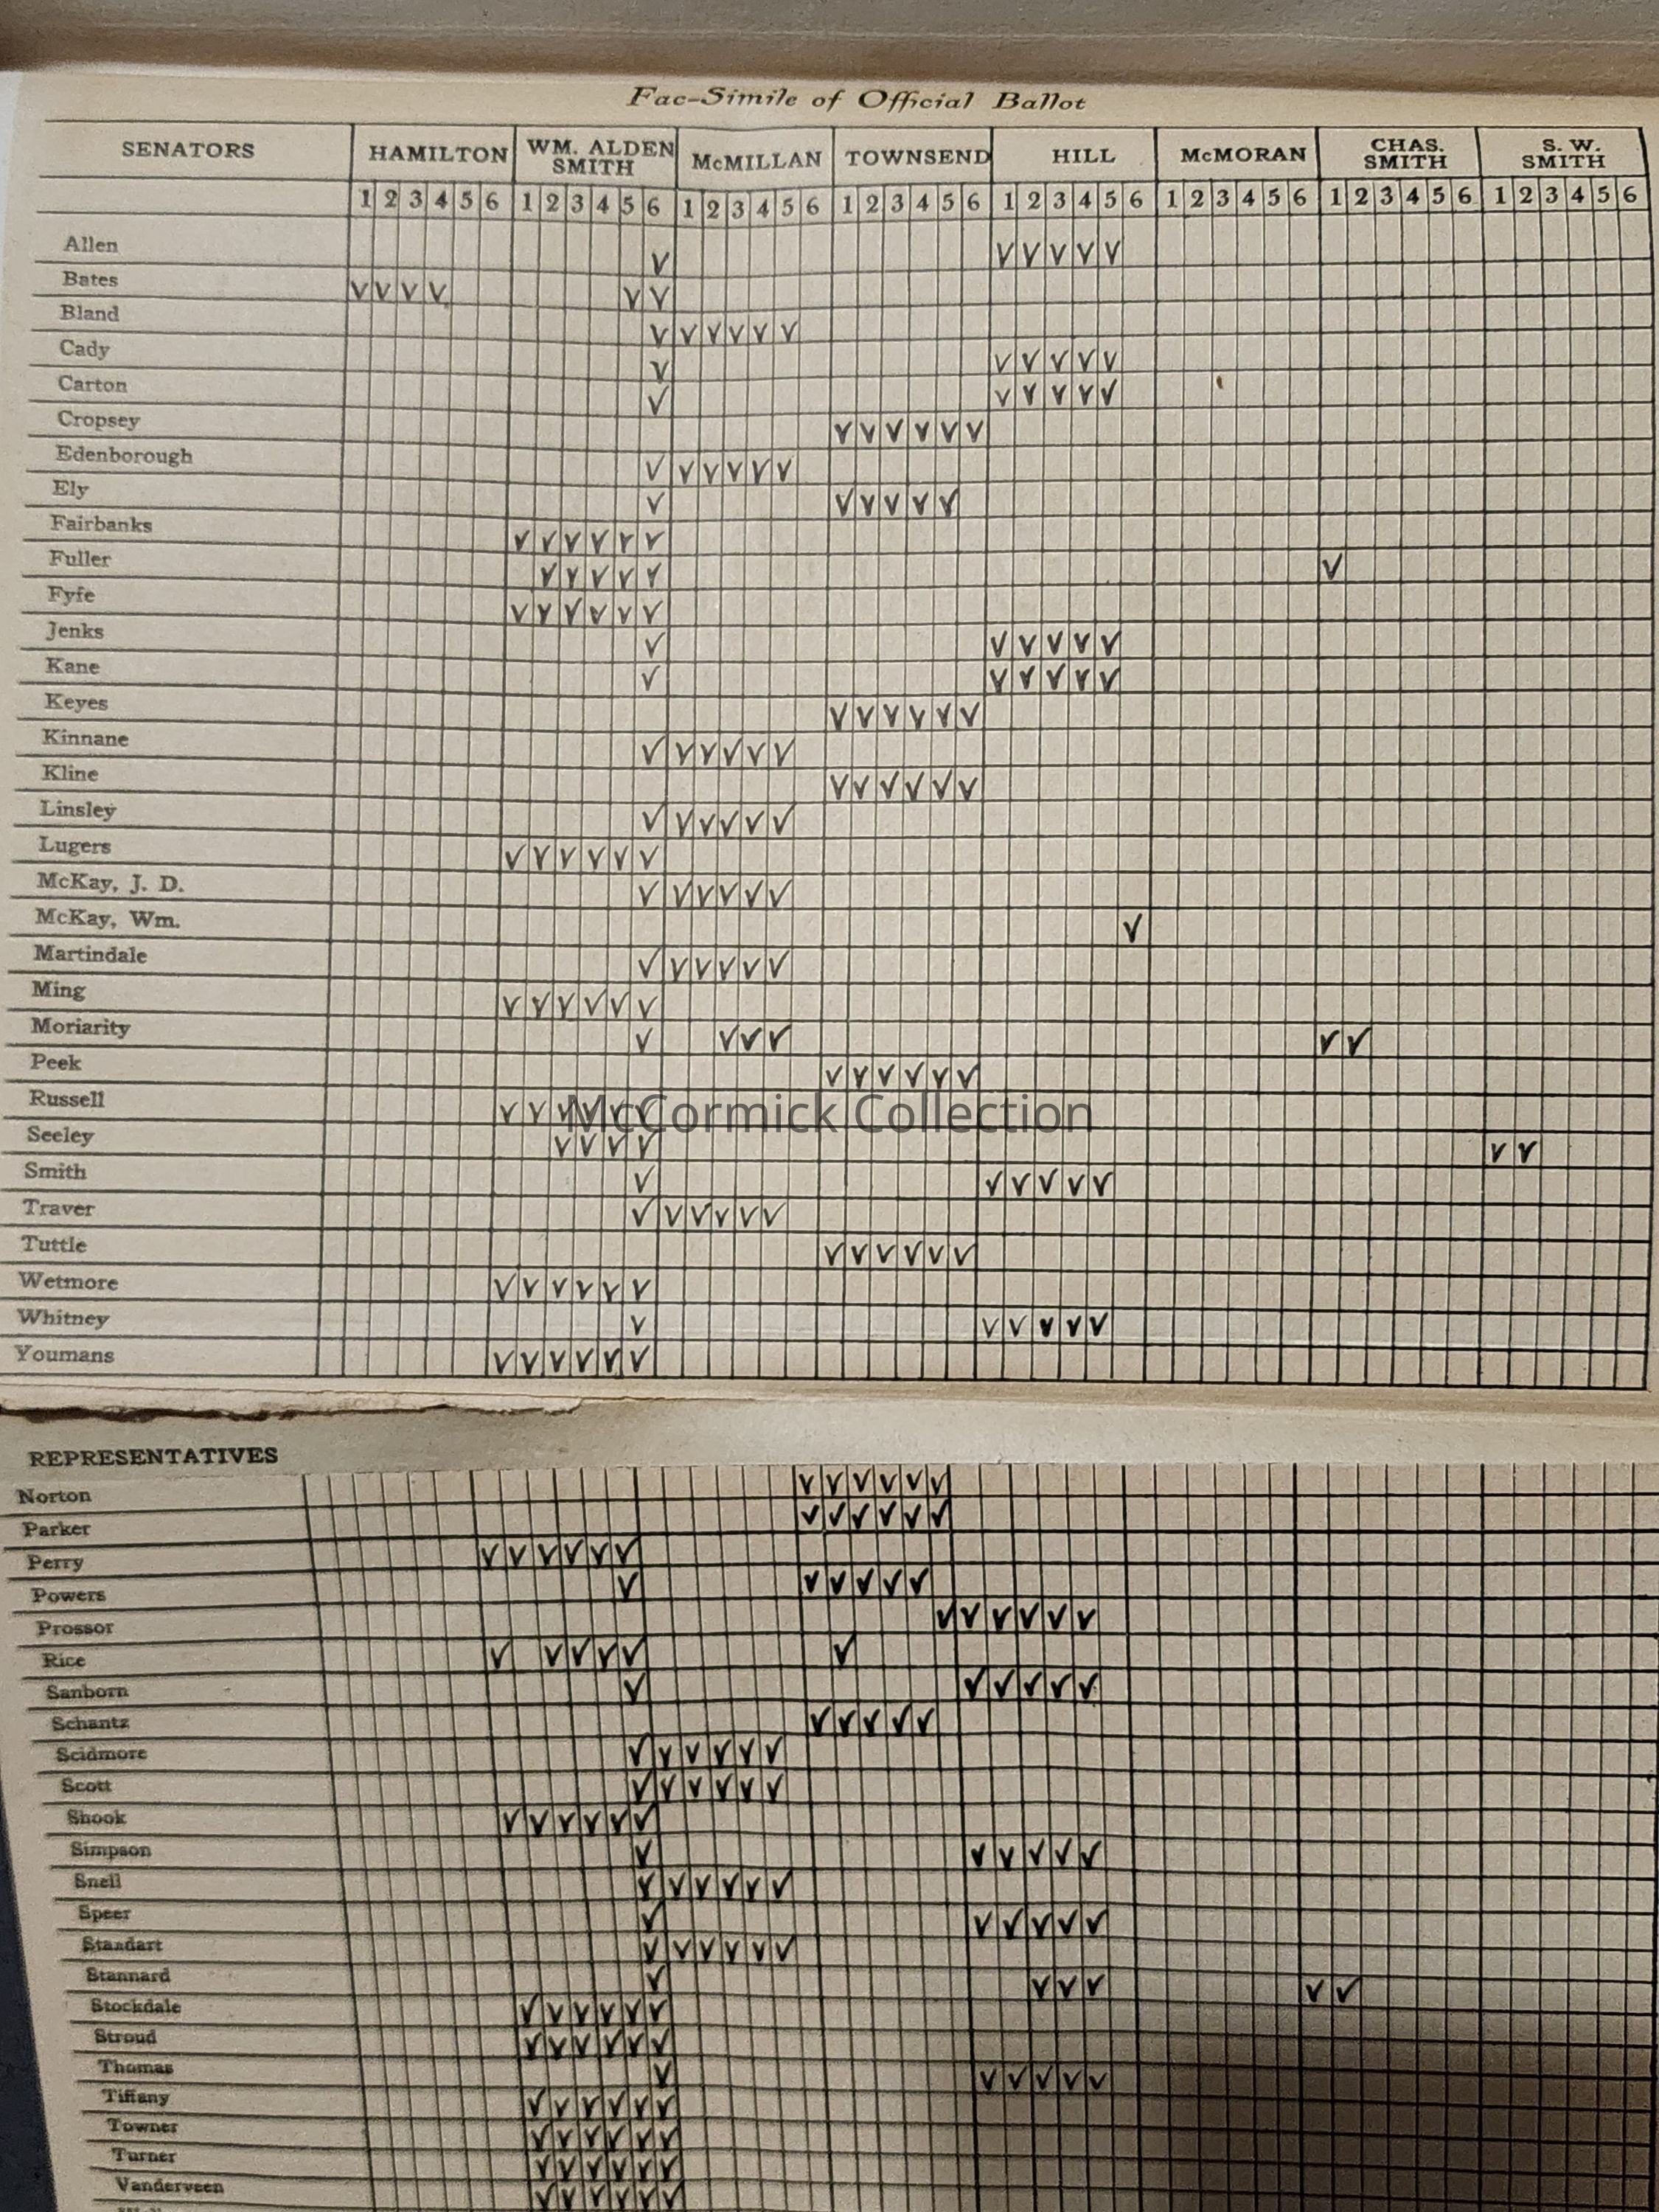 Fac-Simile of Official Ballot
SENATORS HAMILTON WM. ALDEN SMITH McMILLAN TOWNSEND HILL McMORAN CHAS. SMITH S. W. SMITH
1 2 3 4 5 6 1 2 3 4 5 6 1 2 3 4 5 6 1 2 3 4 5 6 1 2 3 4 5 6 1 2 3 4 5 6 1 2 3 4 5 6 1 2 3 4 5 6
Allen
Bates
Bland
Cady
Carton
Cropsey
Edenborough
Ely
Fairbanks
Fuller
Fyfe
Jenks
Kane
Keyes
Kinnane
Kline
Linsley
Lugers
McKay, J. D.
McKay, Wm.
Martindale
Ming
Moriarity
Peek
Russell
McCormick Collection
Seeley
Smith
Traver
Tuttle
Wetmore
Whitney
Youmans
REPRESENTATIVES
Norton
Parker
Perry
Powers
Prossor
Rice
Sanborn
Schantz
Scidmore
Scott
Shook
Simpson
Snell
Speer
Standart
Stannard
Stockdale
Stroud
Thomas
Tiffany
Towner
Turner
Vanderveen